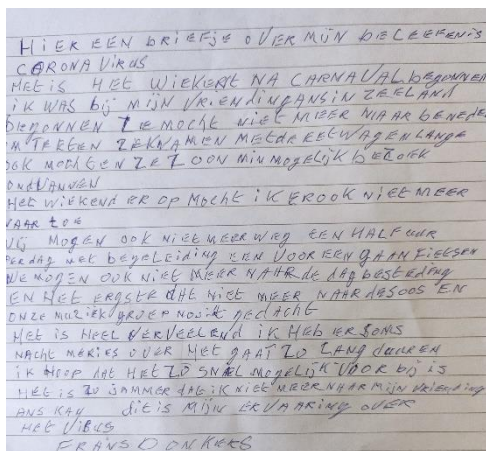 HIER EEN BRIEFJE OVER MIJN BELEEFENIS
CORONA VIRUS
HET IS HET WIEKENT NA CARNAVAL BEGONNEN
IK WAS BIJ MIJN VRIENDIN GANS IN ZEELAND
BEGONNEN ZE MOCHT NIET MEER NAAR BENEDE
OM TE ETEN ZEKNAMEN MET DE EETWAGEN LANGE
OOK MOCHTEN ZE ZOON MIN MOGELIJK BEZOEK
ONDVANNEN
HET WIEKEND ER OP MOCHT IK ER OOK NIET MEER
NAAR TOE
WIJ MOGEN OOK NIET MEER WEG EEN HALF UUR
PER DAG MET BEGELEIDING EEN VOOR EEN GAAN FIETSEN
WE MOGEN OOK NIET MEER NAAR DE DAGBESTEDING
EN HET ERGSTE DAT NIET MEER NAAR DE SOOS EN
ONZE MUZIEK GROEP NOOIT GEDACHT
HET IS HEEL VERVEELEND IK HEB ER SOMS
NACHT MERIES OVER HET GAAT ZO LANG DUUREN
IK HOOP DAT HET ZO SNEL MOGELIJK VOOR BIJ IS
HET IS ZO JAMMER DAT IK NIET MEER NAAR MIJN VRIENDING
ANS KAN DIT IS MIJN ERVAARING OVER
HET VIRUS
FRANS DONKERS